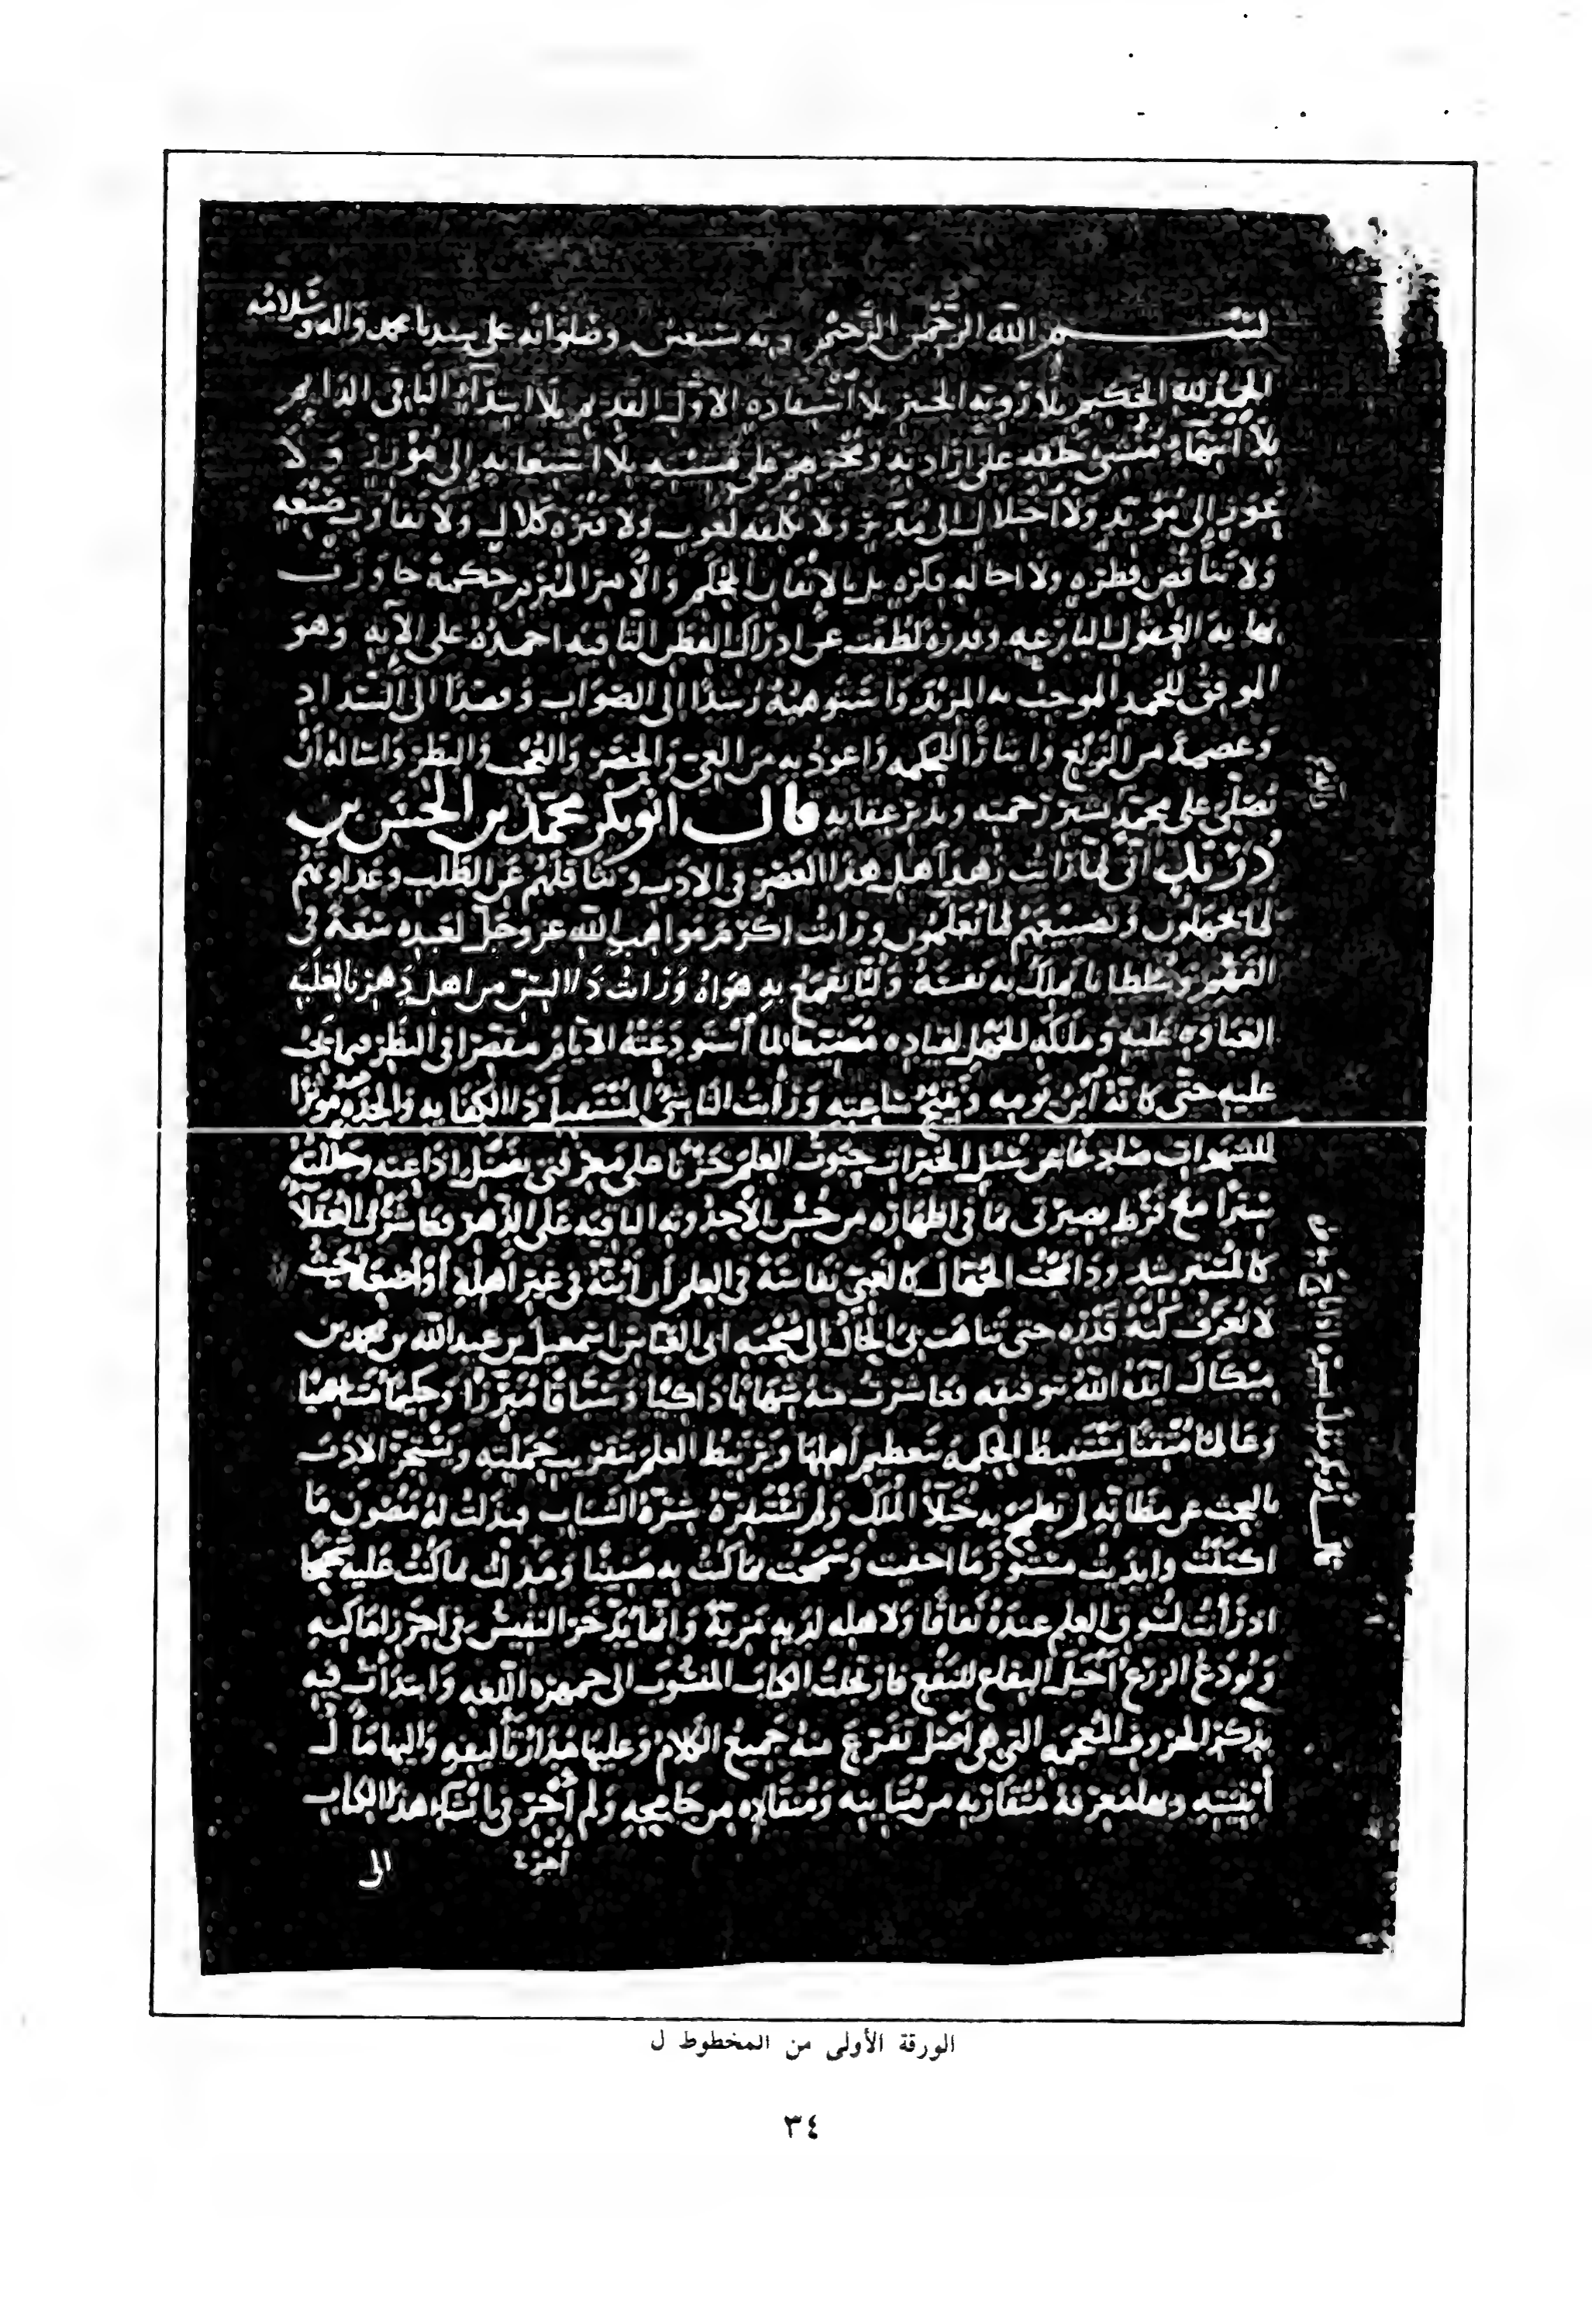 بسم الله الرحمن الرحيم وبه نستعين وصلواته على سيدنا محمد وآله وسلامه
الحمد لله الحكيم بلا روية الخبير بلا استفادة الأول القديم بلا ابتداء الباقي الدائم
بلا انتهاء منشئ خلقه على إرادته ومجريهم على مشيئته بلا استعانة إلى مؤازر ولا
عوز إلى مؤيد ولا اختلال إلى مدبر ولا تكلفة لغوب ولا فترة كلال ولا تفاوت صنعة
ولا تناقض فطرة ولا إجالة فكرة بل بالإتقان المحكم والأمر المبرم حكمة جاوزت
نهاية العقول البارعة وقدرة لطفت عن إدراك الفطن الثاقبة أحمده على آلائه وهو
الموفق للحمد الموجب به المزيد وأستوهبه رشدا إلى الصواب وقصدا إلى السداد
وعصمة من الزيغ وإيثارا للحكمة وأعوذ به من العي والحصر والعجب والبطر وأسأله أن
يصلي على محمد بشير رحمته ونذير عقابه قال أبو بكر محمد بن الحسن بن
دريد إني لما رأيت زهد أهل هذا العصر في الأدب وتثاقلهم عن الطلب وعداوتهم
لما يجهلون وتضييعهم لما يعلمون ورأيت أكرم مواهب الله عز وجل لعبده سعة في
الفهم وسلطانا يملك به نفسه ولبا يقمع به هواه ورأيت ذا السن من أهل دهرنا لغلبة
الغباوة عليه وملكة الجهل لقياده مضيعا لما استودعته الأيام مقصرا في النظر فيما يجب
عليه حتى كأنه ابن يومه ونتيج ساعته ورأيت الناشئ المستقبل ذا الكفاية والجدة مؤثرا
للشهوات صادفا عن سبل الخيرات حبوت العلم خزنا على معرفتي بفضل إذاعته وجللته
سترا مع فرط بصيرتي بما في إظهاره من حسن الأحدوثة الباقية على الدهر فعاشرت العقلاء
كالمسترشد ودامجت الجهال كالغبي نفاسة في العلم أن أبثه في غير أهله أو أضعه حيث
لا يعرف كنه قدره حتى تناهت بي الحال إلى صحبة أبي العباس اسمعيل بن عبد الله بن محمد بن
ميكال أيده الله بتوفيقه فعاشرت منه شهابا ذاكيا وسباقا مبرزا وحكيما متناهيا
وعالما متقنا يستنبط الحكمة بتعظيم أهلها ويرتبط العلم بتقريب حملته ويستجر الأدب
بالبحث عن مظانه لم تطمح به خيلاء الملك ولم تستفزه شرة الشباب فبذلت له مصون ما
أكننت وأبديت مستور ما أخفيت وسمحت بما كنت به ضنينا ومذلت بما كنت عليه شحيحا
إذ رأيت لسوق العلم عنده نفاقا ولأهله لديه مزية وإنما يدخر النفيس في أحرز أماكنه
ويودع الزرع أخيل البقاع للنفع فارتجلت الكتاب المنسوب إلى جمهرة اللغة وابتدأت فيه
بذكر الحروف المعجمة التي هي أصل تفرع منه جميع الكلام وعليها مدار تأليفه وإليها مآل
أبنيته وبها معرفة متقاربه من متباينه ومنقاده من جامحه ولم أجر في إنشاء هذا الكتاب
إلى
الورقة الأولى من المخطوط ل
٣٤